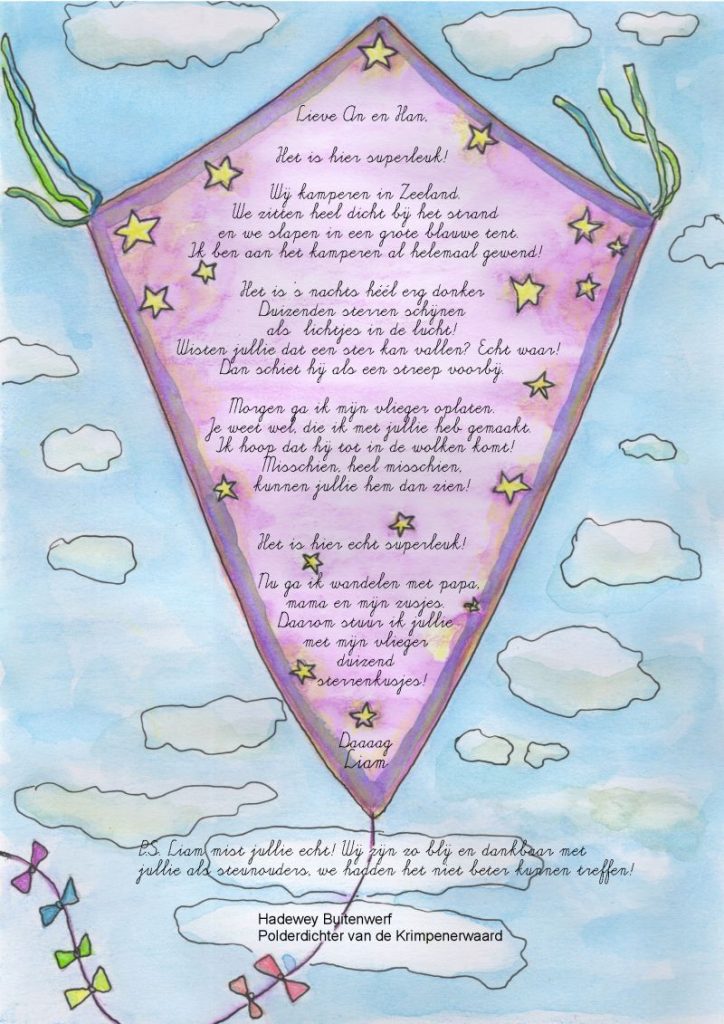 Lieve An en Han,
Het is hier superleuk!
Wij kamperen in Zeeland.
We zitten heel dicht bij het strand
en we slapen in een grote blauwe tent.
Ik ben aan het kamperen al helemaal gewend!
Het is 's nachts héél erg donker
Duizenden sterren schijnen
als lichtjes in de lucht!
Wisten jullie dat een ster kan vallen? Echt waar!
Dan schiet hij als een streep voorbij.
Morgen ga ik mijn vlieger oplaten.
Je weet wel, die ik met jullie heb gemaakt.
Ik hoop dat hij tot in de wolken komt!
Misschien, heel misschien,
kunnen jullie hem dan zien!
Het is hier echt superleuk!
Nu ga ik wandelen met papa,
mama en mijn zusjes.
Daarom stuur ik jullie
met mijn vlieger
duizend
sterrenkusjes!
Daaaag
Liam
P.S. Liam mist jullie echt! Wij zijn zo blij en dankbaar met
jullie als steunouders, we hadden het niet beter kunnen treffen!
Hadewey Buitenwerf
Polderdichter van de Krimpenerwaard